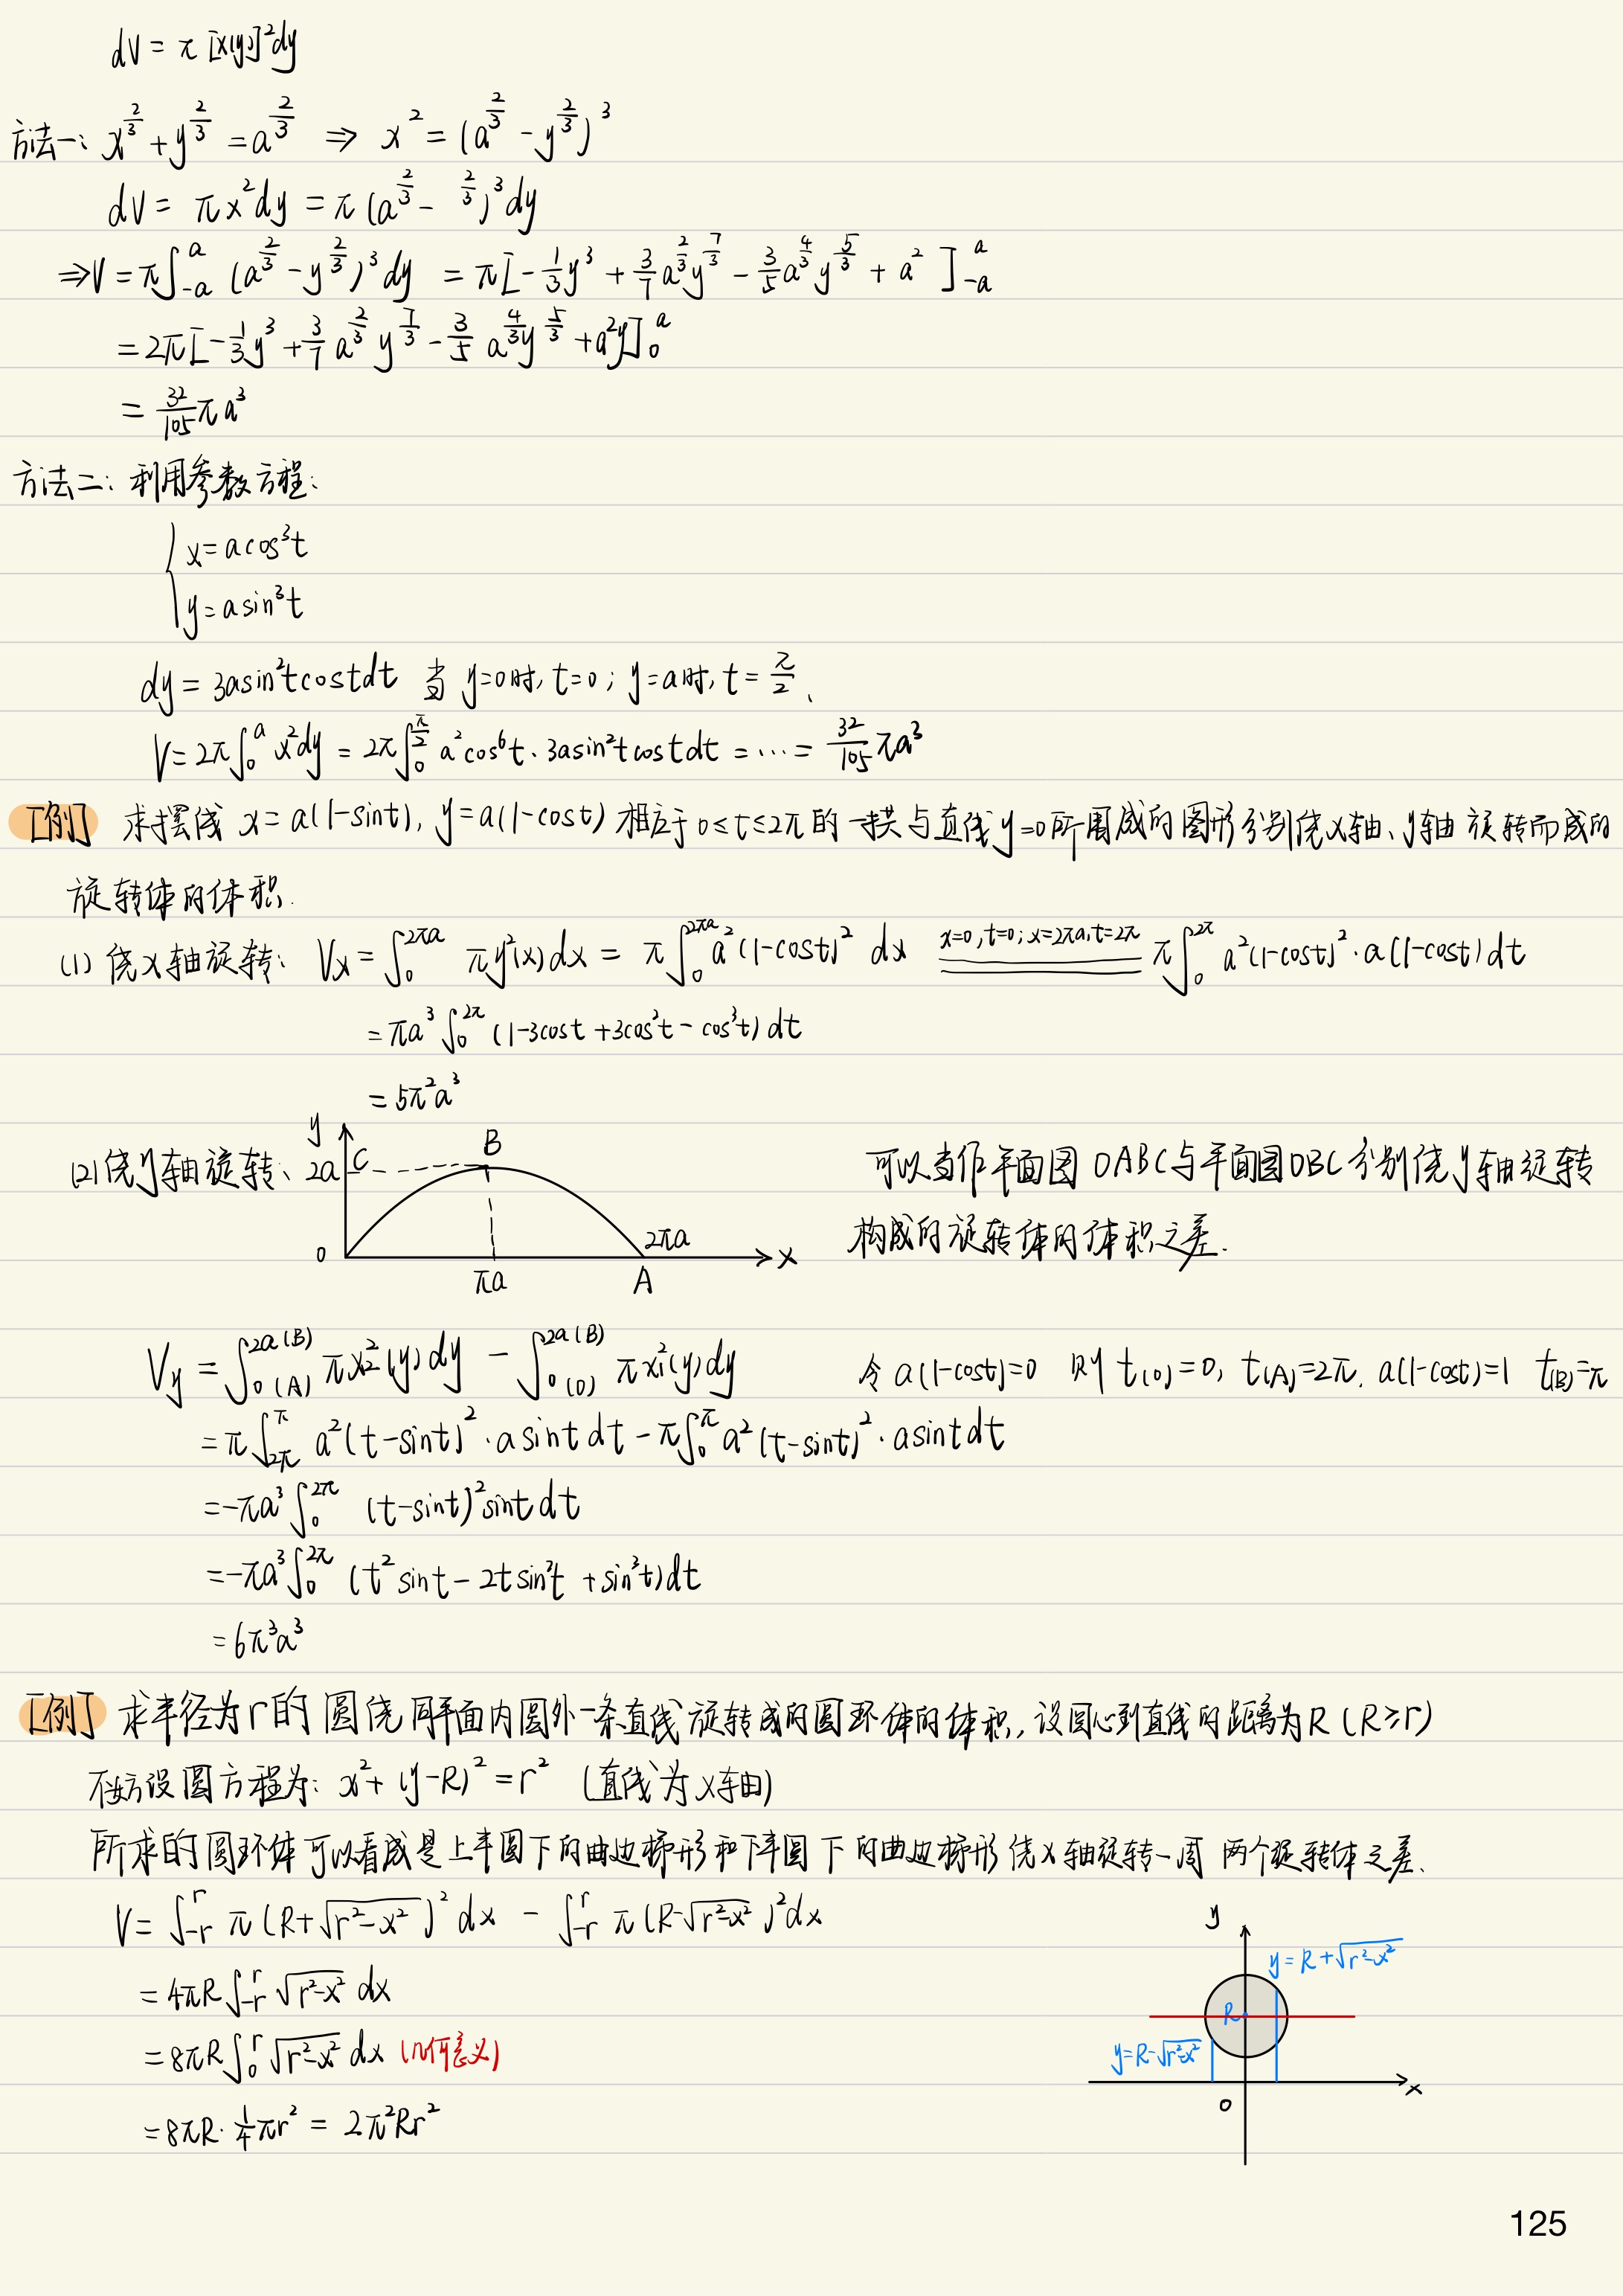 dV = π[x(y)]²dy
方法一: x^{2/3} + y^{2/3} = a^{2/3} ⇒ x² = (a^{2/3} - y^{2/3})³
dV = πx²dy = π(a^{2/3} - ^{2/3})³dy
⇒V = π∫_{-a}^{a} (a^{2/3} - y^{2/3})³dy = π[-1/3 y³ + 3/7 a^{2/3}y^{7/3} - 3/5 a^{4/3}y^{5/3} + a² ]_{-a}^{a}
= 2π[-1/3 y³ + 3/7 a^{2/3} y^{7/3} - 3/5 a^{4/3}y^{5/3} + a²y]_0^a
= 32/105 πa³
方法二: 利用参数方程:
{ x = acos³t
y = asin³t
dy = 3asin²tcostdt 当 y=0时, t=0; y=a时, t=π/2、
V = 2π∫_0^a x²dy = 2π∫_0^{π/2} a²cos⁶t·3asin²tcostdt = … = 32/105 πa³
[例] 求摆线 x = a(1-sint), y = a(1-cost) 相应于 0≤t≤2π 的一拱与直线y=0所围成的图形分别绕x轴、y轴旋转而成的
旋转体的体积.
(1) 绕x轴旋转: V_x = ∫_0^{2πa} πy²(x)dx = π∫_0^{2πa} a²(1-cost)² dx x=0,t=0; x=2πa,t=2π π∫_0^{2π} a²(1-cost)²·a(1-cost)dt
= πa³∫_0^{2π}(1-3cost+3cos²t-cos³t)dt
= 5π²a³
(2)绕y轴旋转、
y
2a C B
0 πa 2πa A x
可以当作平面图OABC与平面图OBC分别绕y轴旋转
构成的旋转体的体积之差.
V_y = ∫_{0(A)}^{2a(B)} πx₂²(y)dy - ∫_{0(0)}^{2a(B)} πx₁²(y)dy 令a(1-cost)=0 则 t(0)=0, t(A)=2π. a(1-cost)=1 t(B)=π
= π∫_{2π}^{π} a²(t-sint)²·asintdt - π∫_0^π a²(t-sint)²·asintdt
= -πa³∫_0^{2π} (t-sint)²sintdt
= -πa³∫_0^{2π} (t²sint - 2tsin²t + sin³t)dt
= 6π³a³
[例] 求半径为r的圆绕同平面内圆外一条直线旋转成的圆环体的体积, 设圆心到直线的距离为R(R≥r)
不妨设圆方程为: x² + (y-R)² = r² (直线为x轴)
所求的圆环体可以看成是上半圆下的曲边梯形和下半圆下的曲边梯形绕x轴旋转一周 两个旋转体之差、
V = ∫_{-r}^{r} π(R+√(r²-x²))²dx - ∫_{-r}^{r} π(R-√(r²-x²))²dx
= 4πR∫_{-r}^{r} √(r²-x²) dx
= 8πR∫_0^r √(r²-x²) dx (几何意义)
= 8πR·1/4πr² = 2π²Rr²
y
y=R+√(r²-x²)
R
y=R-√(r²-x²)
x
0
125